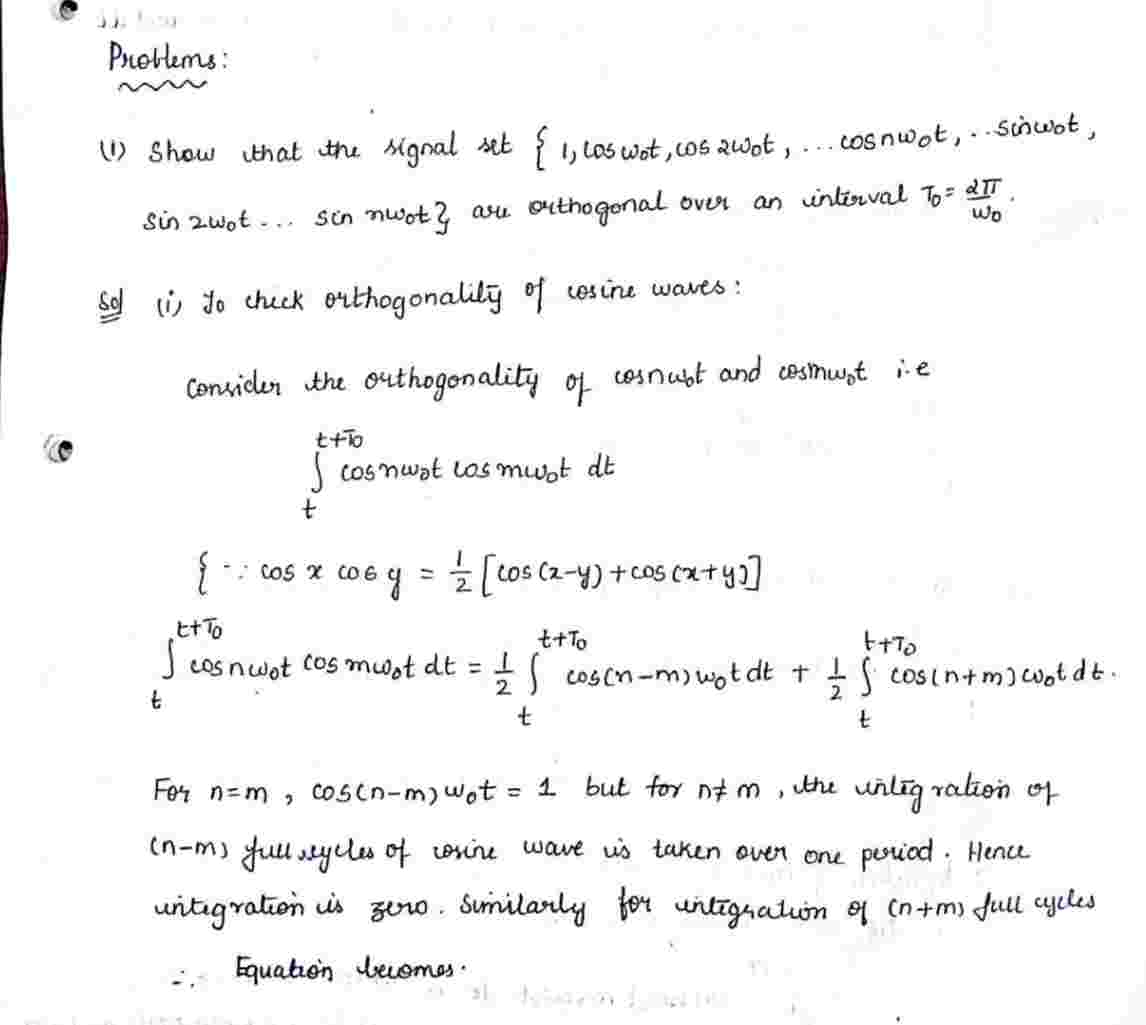 Problems:
(1) Show that the signal set { 1, cos ω₀t, cos 2ω₀t, ... cos nω₀t, .. sin ω₀t,
sin 2ω₀t ... sin nω₀t } are orthogonal over an interval T₀ = 2π/ω₀.
Sol (i) To check orthogonality of cosine waves:
Consider the orthogonality of cos nω₀t and cos mω₀t i.e
∫ₜ^(t+T₀) cos nω₀t cos mω₀t dt
{ ∵ cos x cos y = 1/2 [cos(x-y) + cos(x+y)]
∫ₜ^(t+T₀) cos nω₀t cos mω₀t dt = 1/2 ∫ₜ^(t+T₀) cos(n-m)ω₀t dt + 1/2 ∫ₜ^(t+T₀) cos(n+m)ω₀t dt.
For n=m, cos(n-m)ω₀t = 1 but for n≠m, the integration of
(n-m) full cycles of cosine wave is taken over one period. Hence
integration is zero. Similarly for integration of (n+m) full cycles
∴ Equation becomes.